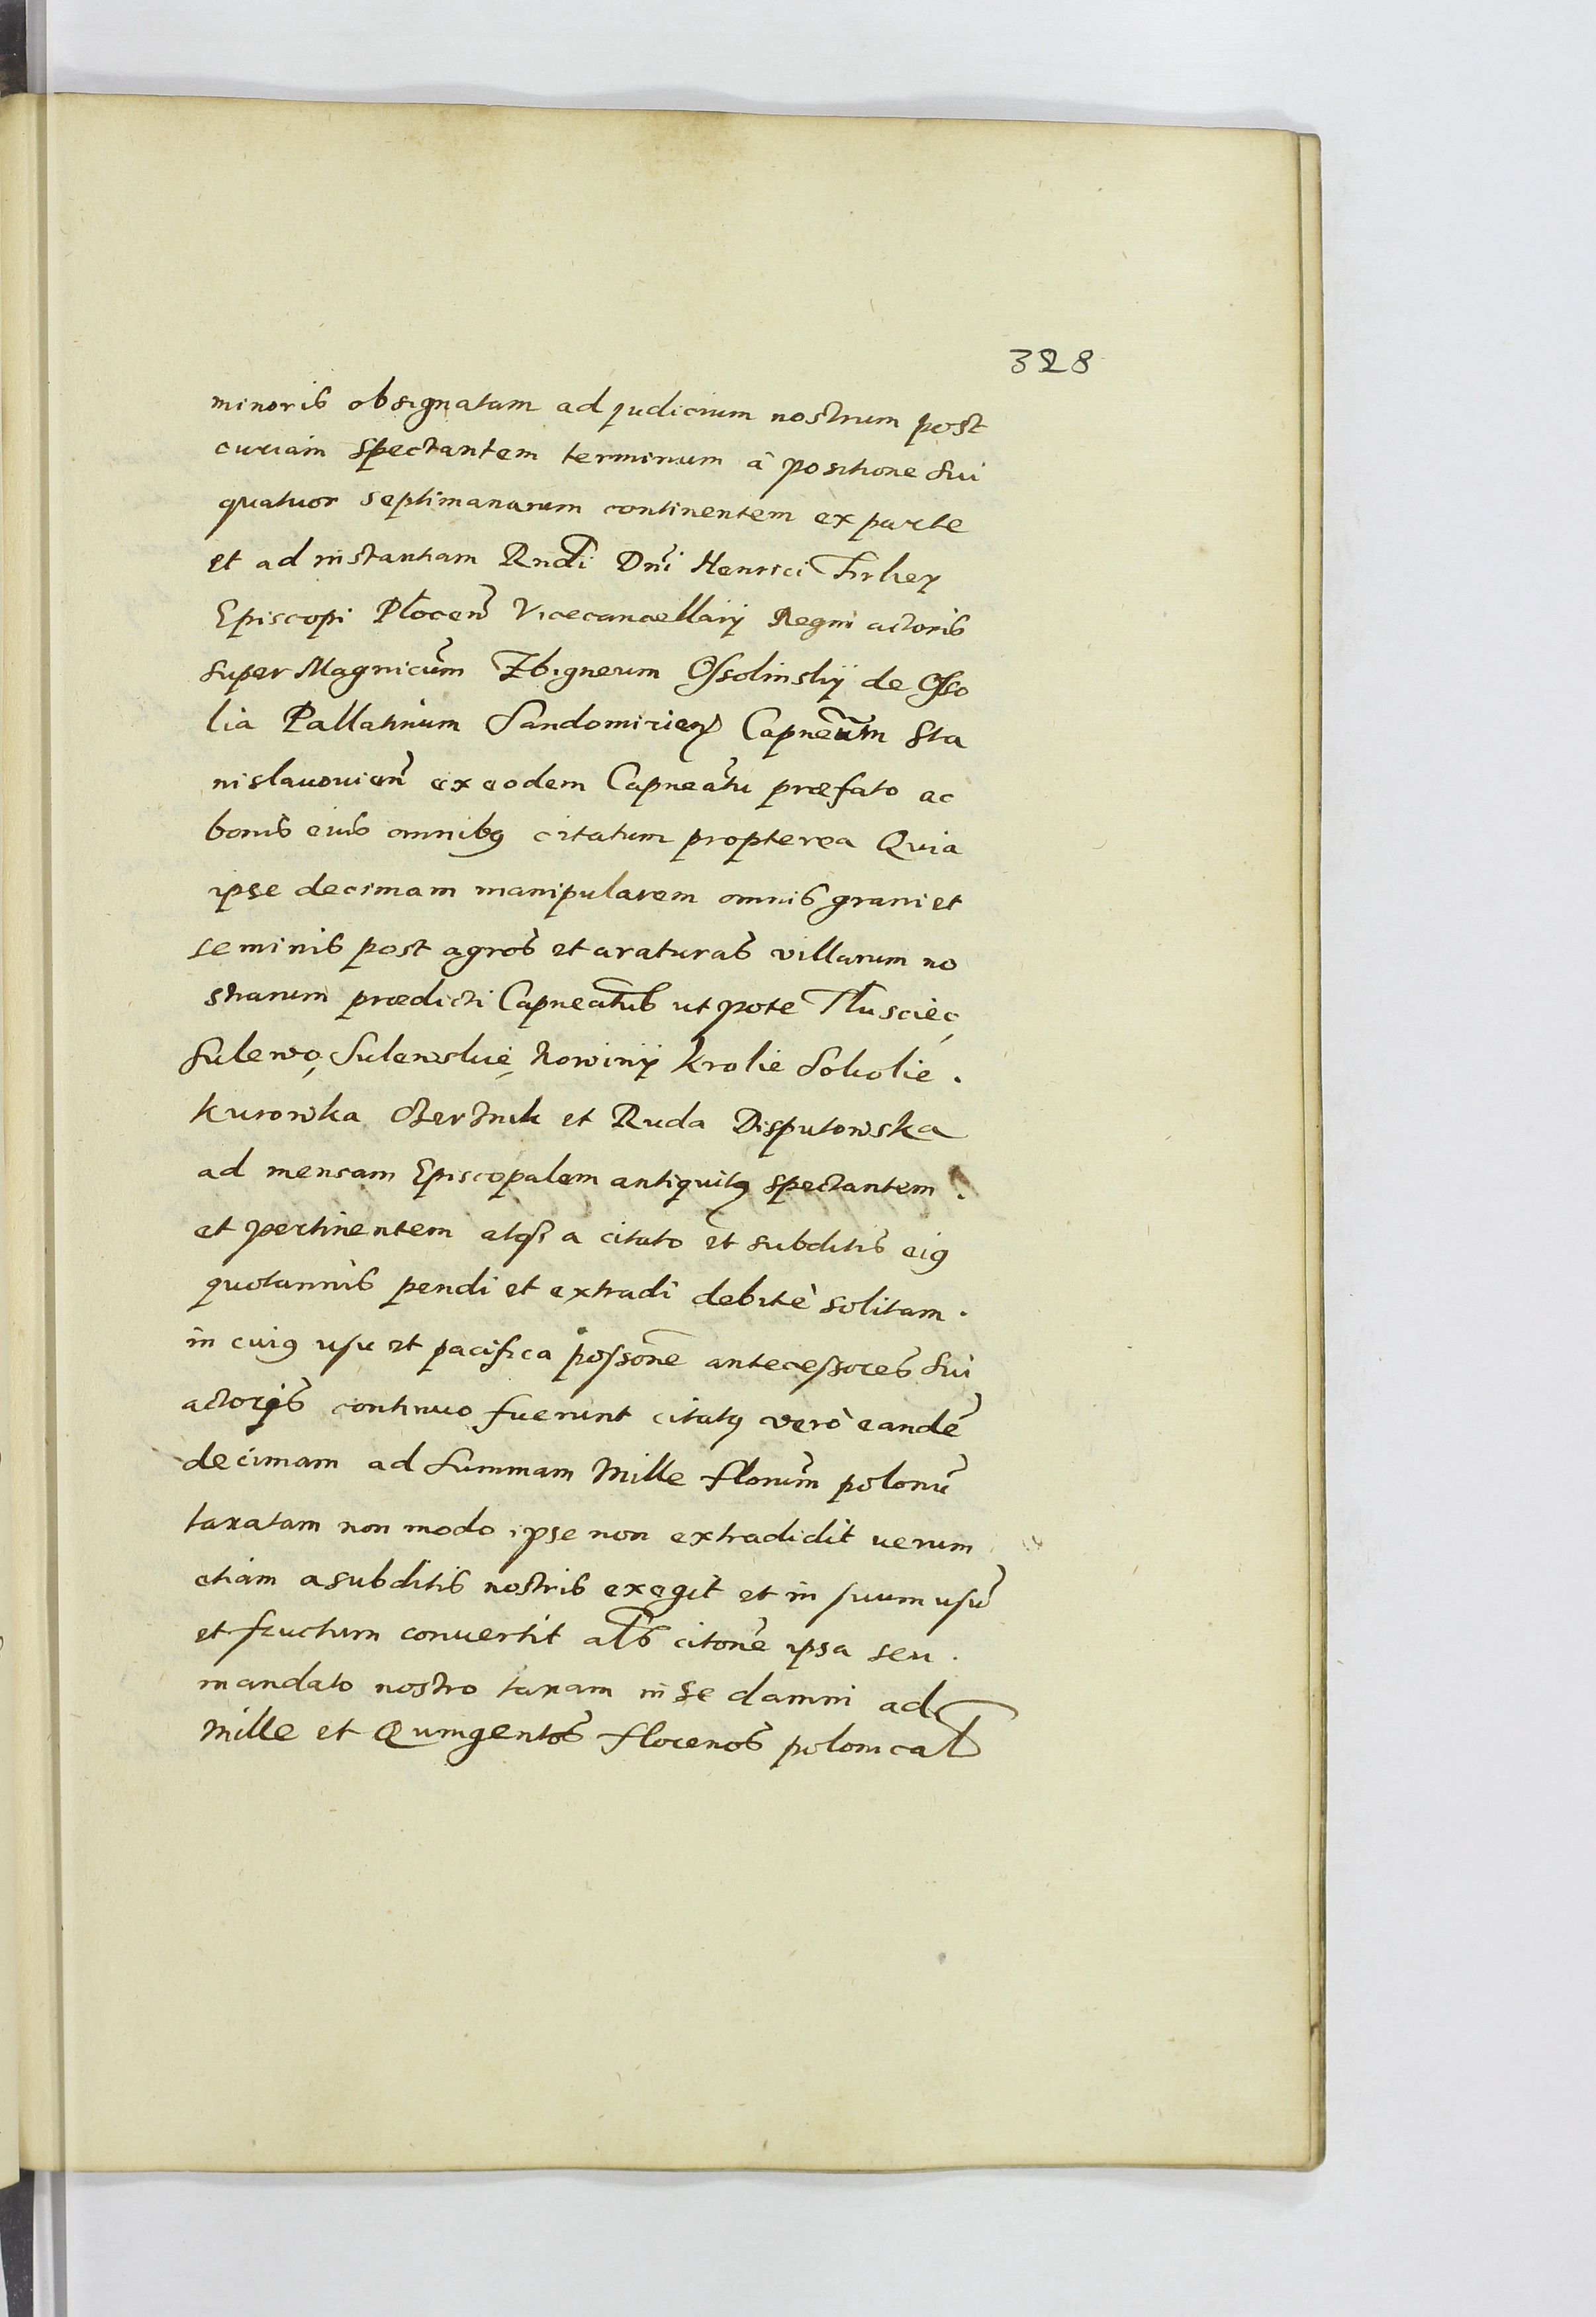 328
minoris obsignatam ad judicium nostrum post
curiam spectantem terminum â positione sui
quatuor septimanarum continentem ex parte
et ad instantiam Rndi Dni Henrici Firley
Episcopi Plocen Vicecancellarij Regni actoris
super Magnicum Zbigneum Ossolinskij de Osso
lia Pallatinum Sandomirien Capneum Sta
nislauouien ex eodem Capneatu præfato ac
bonis eius omnibq citatum propterea Quia
ipse decimam manipularem omnis grani et
seminis post agros et araturas villarum no
strarum prædicti Capneatus ut pote Tlusciec,
Sulewo, Sulewskie, Nowiny Krolie Sokolie.
Kurowka et Ruda Disputowska
ad mensam Episcopalem antiquitq spectantem.
et pertinentem atqz a citato et subditis eiq
quotannis pendi et extradi debitè solitam.
in cuiq usu et pacifica possone antecessores sui
actoris continuo fuerunt citatq verò eandē
decimam ad summam Mille florum polonū
taxatam non modo ipse non extradidit uerum
etiam a subditis nostris exegit et in suum usū
et fructum conuertit als citone ipsa seu.
mandato nostro taxam in se damni ad
Mille et Quingentos florenos polonical